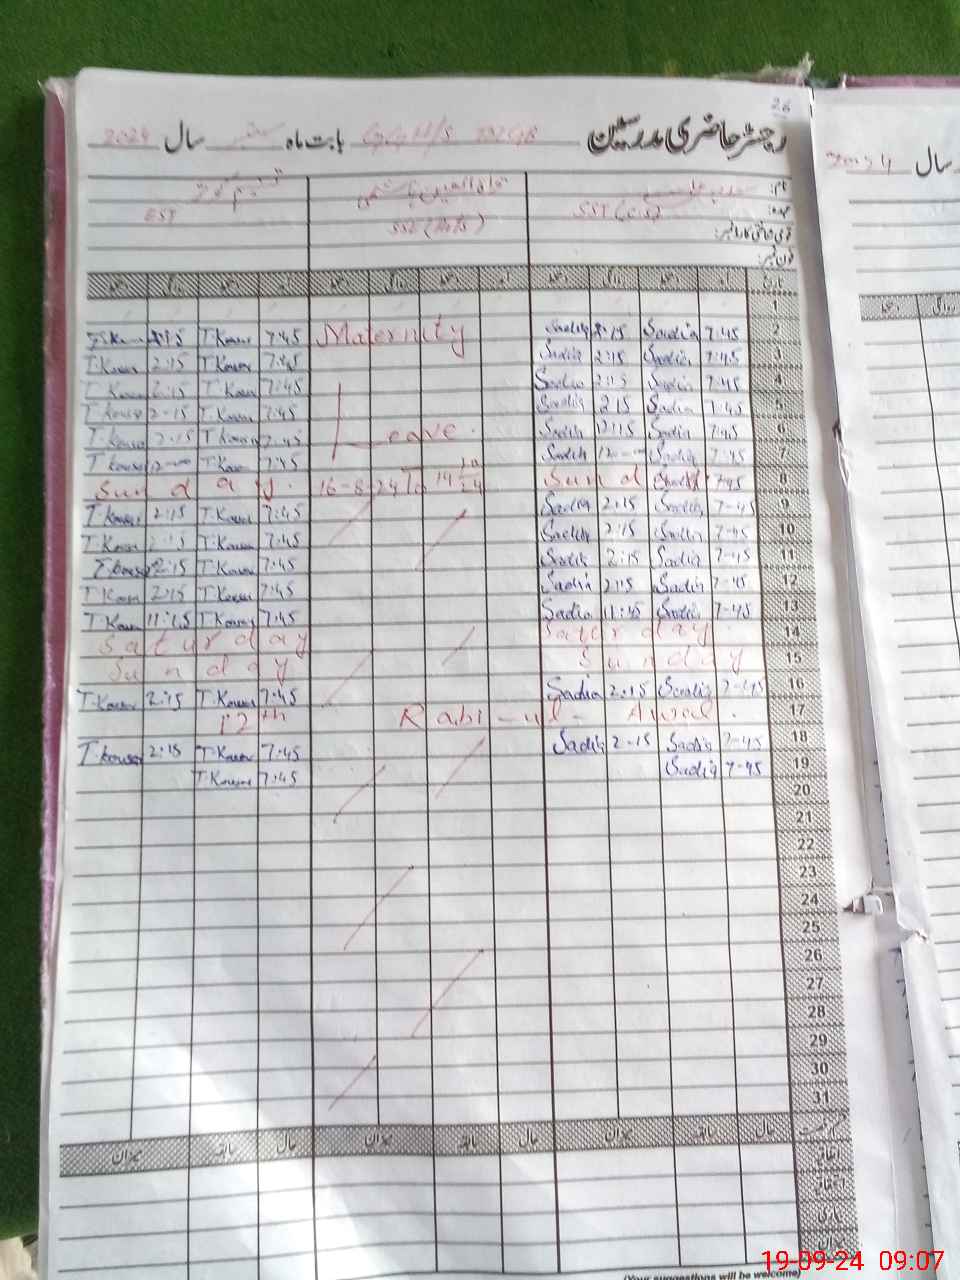 26
رجسٹر حاضری مدرسین بابت ماہ سال 2024
نام:
عہدہ: SST (C.S) SSE (Arts) EST
قومی شناختی کارڈ نمبر:
فون نمبر:
تاریخ
1
2 Sadia 7:45 Sadia 2:15 Maternity T.Kousar 7:45 T.Kousar 2:15
3 Sadia 7:45 Sadia 2:15 T.Kousar 7:45 T.Kousar 2:15
4 Sadia 7:45 Sadia 2:15 T.Kousar 7:45 T.Kousar 2:15
5 Sadia 7:45 Sadia 2:15 T.Kousar 7:45 T.Kousar 2:15
6 Sadia 7:45 Sadia 12:15 Leave. T.Kousar 7:45 T.Kousar 2:15
7 Sadia 7:45 Sadia 12:00 T.Kousar 7:45 T.Kousar 12:00
8 Sunday 7:45 16-8-24 To 14 Sunday.
9 Sadia 7-45 Sadia 2:15 T.Kousar 7:45 T.Kousar 2:15
10 Sadia 7-45 Sadia 2:15 T.Kousar 7:45 T.Kousar 2:15
11 Sadia 7-45 Sadia 2:15 T.Kousar 7:45 T.Kousar 2:15
12 Sadia 7-45 Sadia 2:15 T.Kousar 7:45 T.Kousar 2:15
13 Sadia 7-45 Sadia 11:45 T.Kousar 7:45 T.Kousar
14 Saturday Saturday
15 Sunday Sunday
16 Sadia 7-45 Sadia 2:15 T.Kousar 7:45 T.Kousar 2:15
17 12th Rabi-ul-Awal.
18 Sadia 7-45 Sadia 2-15 T.Kousar 7:45 T.Kousar 2:15
19 Sadia 7-45 T.Kousar 7:45
20
21
22
23
24
25
26
27
28
29
30
31
حال سابقہ میزان حال سابقہ میزان حال سابقہ میزان
اتفاقی
میزان
(Your suggestions will be welcome)
2024 سال
19-09-24 09:07